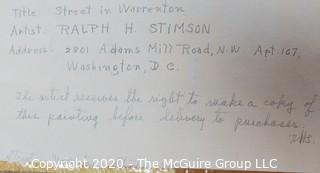 Title: Street in Warrenton
Artist: RALPH H. STIMSON
Address: 2801 Adams Mill Road, N.W. Apt. 107,
Washington, D.C.
The artist reserves the right to make a copy of
this painting before delivery to purchaser.
RHS.
Copyright 2020 - The McGuire Group LLC